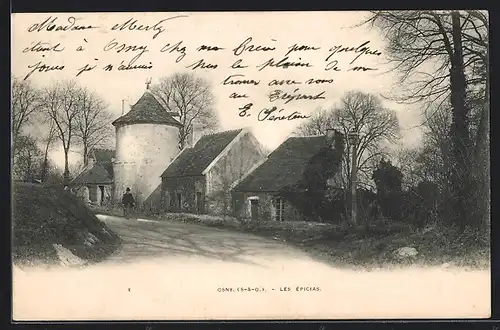 Madame Merty
étant à Osny chez ma Mère pour quelques
jours je n'aurais pas le plaisir de m
trouver avec vous
au départ
E. Sénéchau
8 OSNY. (S-&-O.). - LES ÉPICIAS.